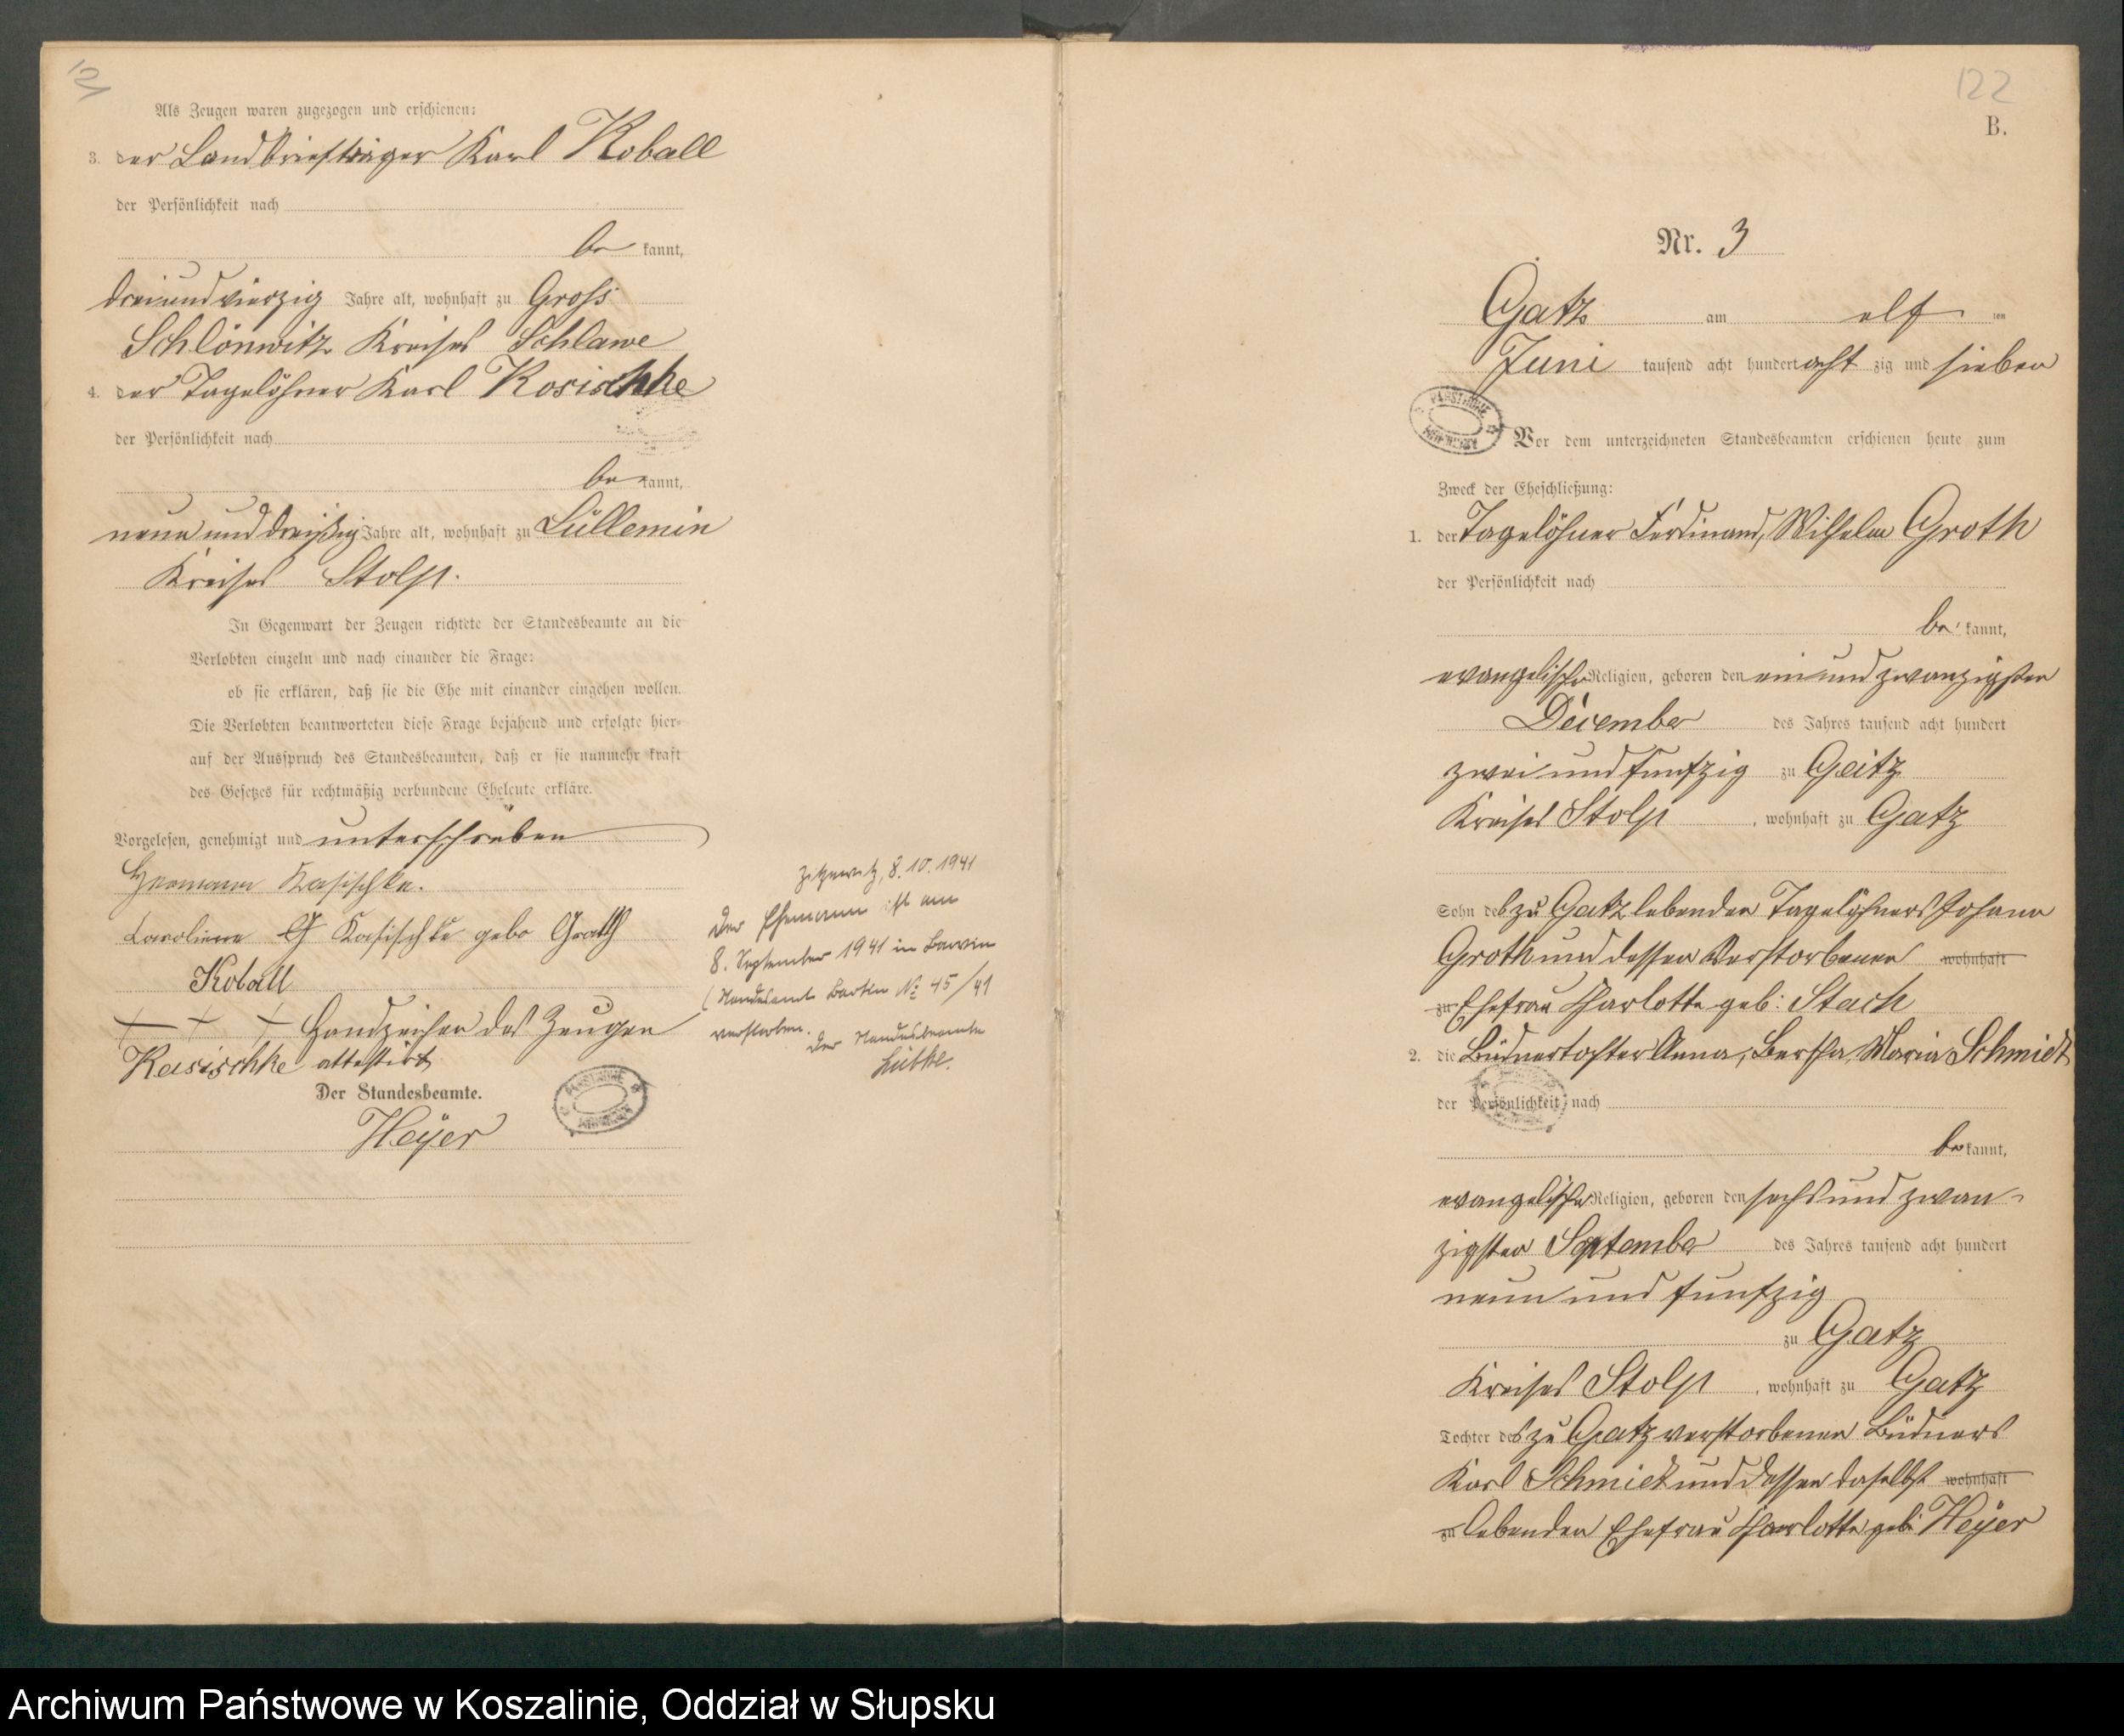 121
Als Zeugen waren zugezogen und erschienen:
3. der Landbriefträger Karl Koball
der Persönlichkeit nach
be kannt,
dreiundvierzig Jahre alt, wohnhaft zu Gross
Schlönwitz Kreises Schlawe
4. der Tagelöhner Karl Kosischke
der Persönlichkeit nach
be kannt,
neun und dreißig Jahre alt, wohnhaft zu Lüllemin
Kreises Stolp.
In Gegenwart der Zeugen richtete der Standesbeamte an die
Verlobten einzeln und nach einander die Frage:
ob sie erklären, daß sie die Ehe mit einander eingehen wollen.
Die Verlobten beantworteten diese Frage bejahend und erfolgte hier-
auf der Ausspruch des Standesbeamten, daß er sie nunmehr kraft
des Gesetzes für rechtmäßig verbundene Eheleute erkläre.
Vorgelesen, genehmigt und unterschrieben
Hermann Kasischke.
Caroliene G Kasischke gebo Groth
Koball
+ + + Handzeichen des Zeugen
Kasischke attestirt
Der Standesbeamte.
Heyer
Zitzewitz, 8.10.1941
Der Ehemann ist am
8. September 1941 in Barvin
(Standesamt Bartin № 45/41
verstorben.
Der Standesbeamte
Lübke.
122
B.
Nr. 3
Gatz am elf ten
Juni tausend acht hundert acht zig und sieben
Vor dem unterzeichneten Standesbeamten erschienen heute zum
Zweck der Eheschließung:
1. der Tagelöhner Ferdinand, Wilhelm Groth
der Persönlichkeit nach
be kannt,
evangelischer Religion, geboren den ein und zwanzigsten
December des Jahres tausend acht hundert
zwei und funfzig zu Geitz
Kreises Stolp, wohnhaft zu Gatz
Sohn des zu Gatz lebenden Tagelöhners Johann
Groth und dessen verstorbenen wohnhaft
zu Ehefrau Charlotte geb: Stach
2. die Büdnertochter Anna, Bertha, Maria Schmidt
der Persönlichkeit nach
be kannt,
evangelischer Religion, geboren den sechs und zwan-
zigsten September des Jahres tausend acht hundert
neun und funfzig
zu Gatz
Kreises Stolp, wohnhaft zu Gatz
Tochter des zu Gatz verstorbenen Büdners
Karl Schmidt und dessen daselbst wohnhaft
zu lebenden Ehefrau Charlotte geb: Heyer
Archiwum Państwowe w Koszalinie, Oddział w Słupsku